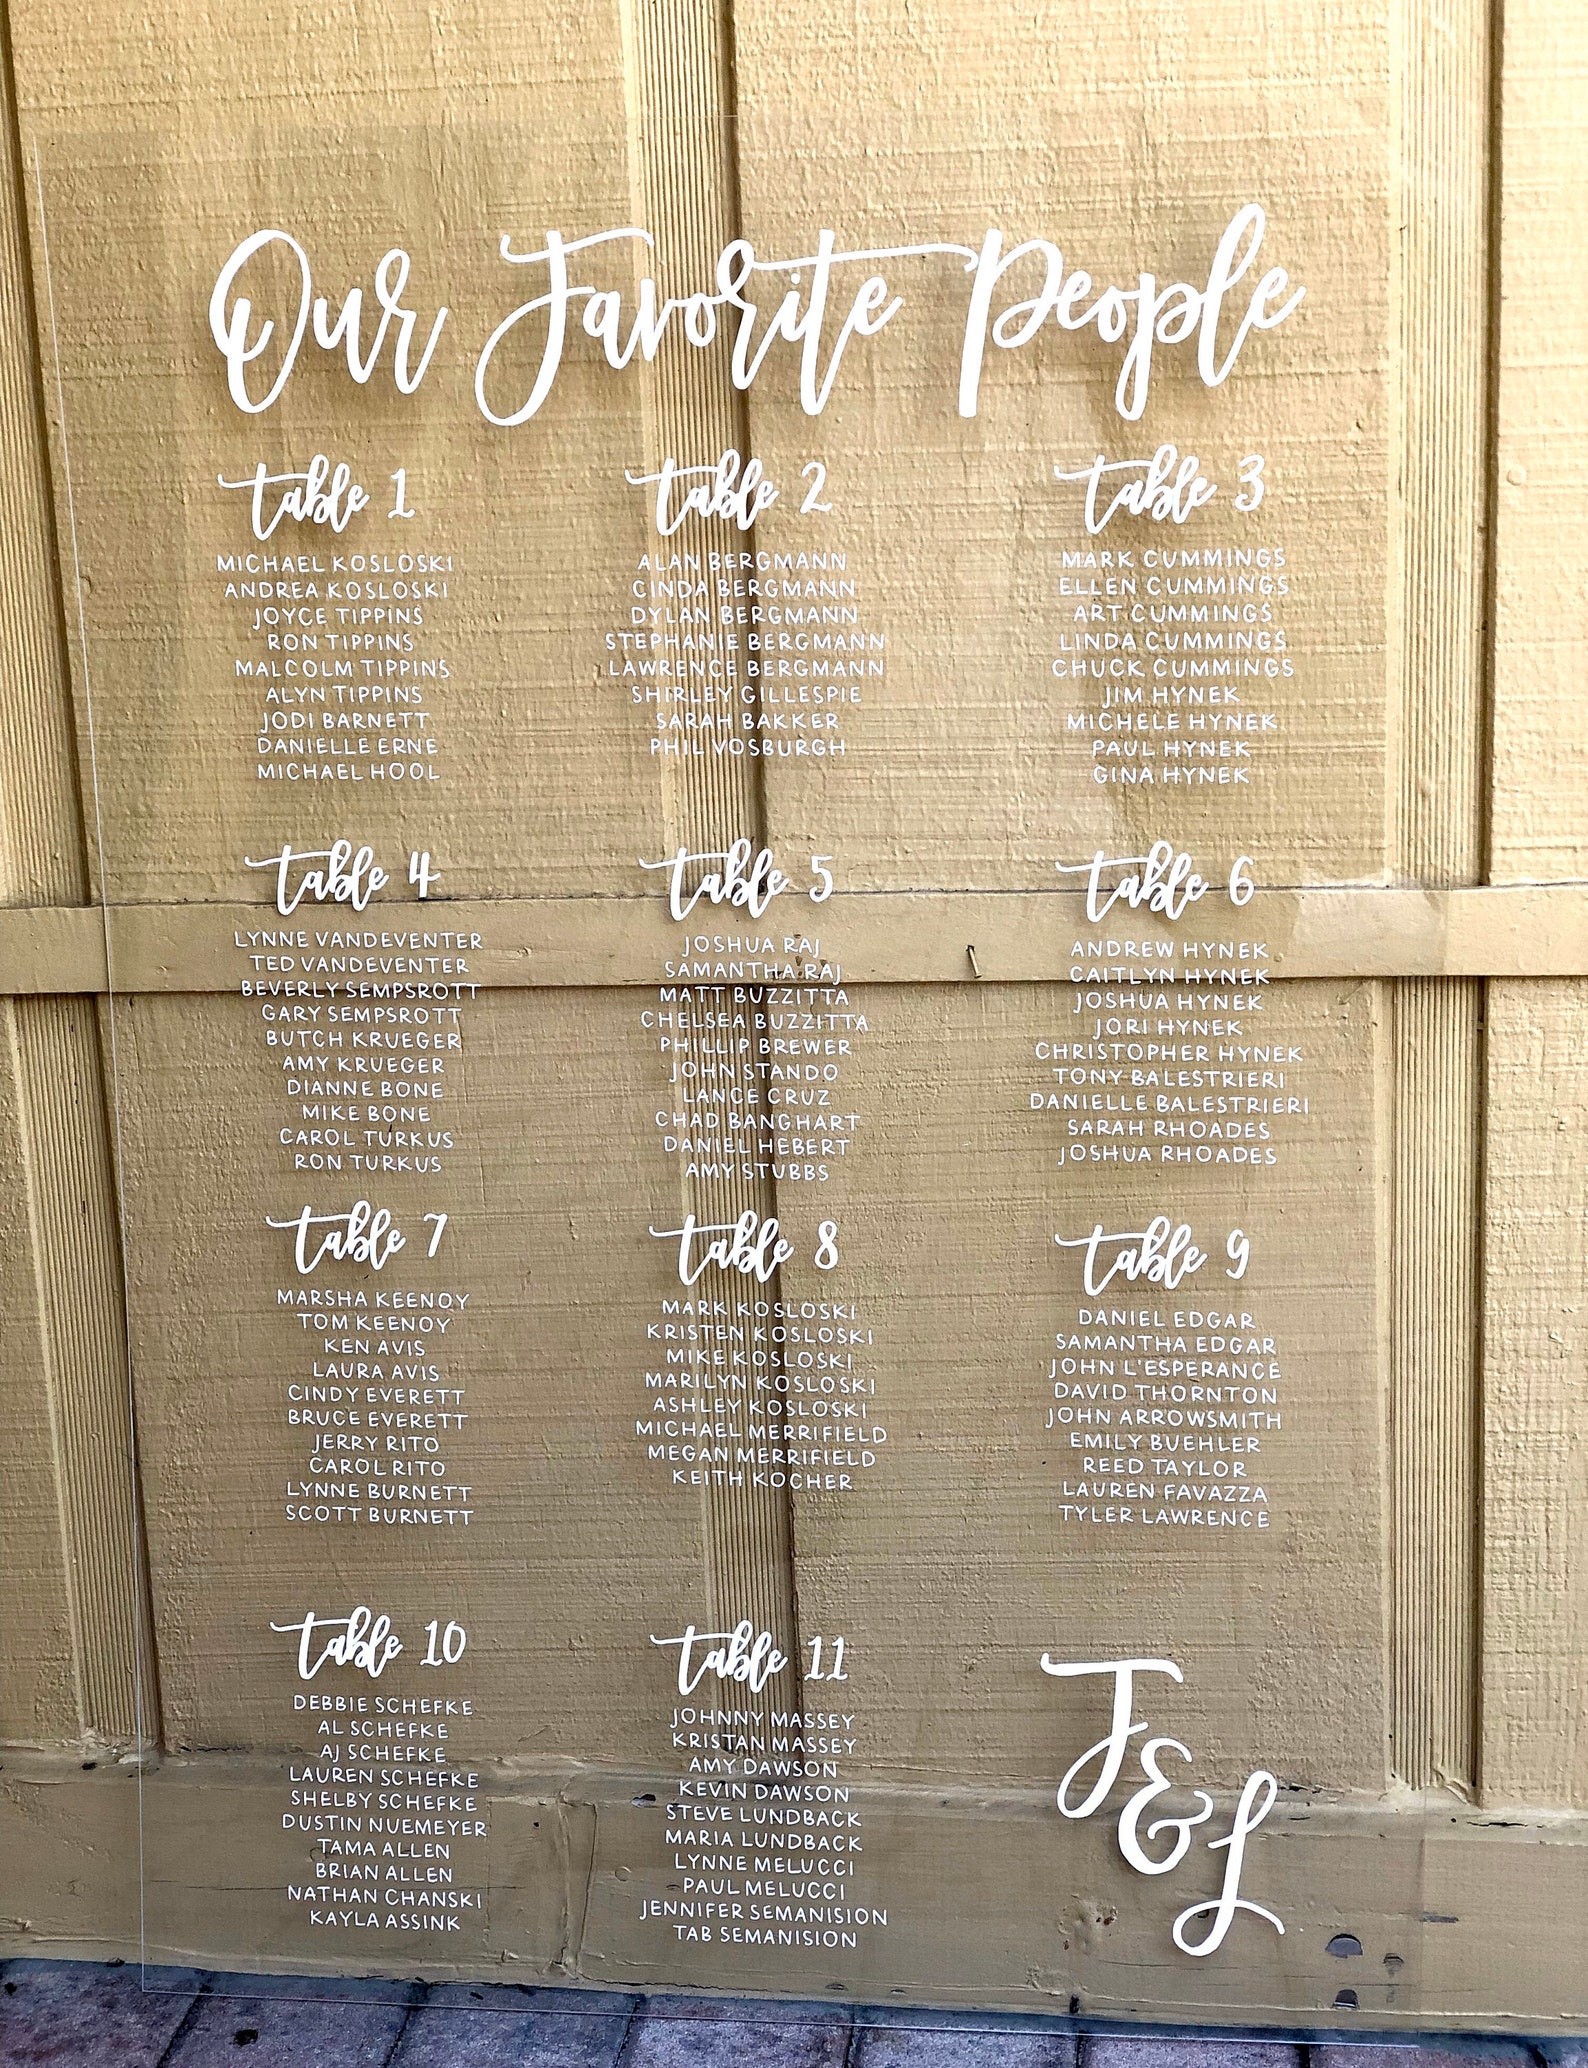 Our Favorite People
table 1
MICHAEL KOSLOSKI
ANDREA KOSLOSKI
JOYCE TIPPINS
RON TIPPINS
MALCOLM TIPPINS
ALYN TIPPINS
JODI BARNETT
DANIELLE ERNE
MICHAEL HOOL
table 2
ALAN BERGMANN
CINDA BERGMANN
DYLAN BERGMANN
STEPHANIE BERGMANN
LAWRENCE BERGMANN
SHIRLEY GILLESPIE
SARAH BAKKER
PHIL VOSBURGH
table 3
MARK CUMMINGS
ELLEN CUMMINGS
ART CUMMINGS
LINDA CUMMINGS
CHUCK CUMMINGS
JIM HYNEK
MICHELE HYNEK
PAUL HYNEK
GINA HYNEK
table 4
LYNNE VANDEVENTER
TED VANDEVENTER
BEVERLY SEMPSROTT
GARY SEMPSROTT
BUTCH KRUEGER
AMY KRUEGER
DIANNE BONE
MIKE BONE
CAROL TURKUS
RON TURKUS
table 5
JOSHUA RAJ
SAMANTHA RAJ
MATT BUZZITTA
CHELSEA BUZZITTA
PHILLIP BREWER
JOHN STANDO
LANCE CRUZ
CHAD BANGHART
DANIEL HEBERT
AMY STUBBS
table 6
ANDREW HYNEK
CAITLYN HYNEK
JOSHUA HYNEK
JORI HYNEK
CHRISTOPHER HYNEK
TONY BALESTRIERI
DANIELLE BALESTRIERI
SARAH RHOADES
JOSHUA RHOADES
table 7
MARSHA KEENOY
TOM KEENOY
KEN AVIS
LAURA AVIS
CINDY EVERETT
BRUCE EVERETT
JERRY RITO
CAROL RITO
LYNNE BURNETT
SCOTT BURNETT
table 8
MARK KOSLOSKI
KRISTEN KOSLOSKI
MIKE KOSLOSKI
MARILYN KOSLOSKI
ASHLEY KOSLOSKI
MICHAEL MERRIFIELD
MEGAN MERRIFIELD
KEITH KOCHER
table 9
DANIEL EDGAR
SAMANTHA EDGAR
JOHN L'ESPERANCE
DAVID THORNTON
JOHN ARROWSMITH
EMILY BUEHLER
REED TAYLOR
LAUREN FAVAZZA
TYLER LAWRENCE
table 10
DEBBIE SCHEFKE
AL SCHEFKE
AJ SCHEFKE
LAUREN SCHEFKE
SHELBY SCHEFKE
DUSTIN NUEMEYER
TAMA ALLEN
BRIAN ALLEN
NATHAN CHANSKI
KAYLA ASSINK
table 11
JOHNNY MASSEY
KRISTAN MASSEY
AMY DAWSON
KEVIN DAWSON
STEVE LUNDBACK
MARIA LUNDBACK
LYNNE MELUCCI
PAUL MELUCCI
JENNIFER SEMANISION
TAB SEMANISION
J&L